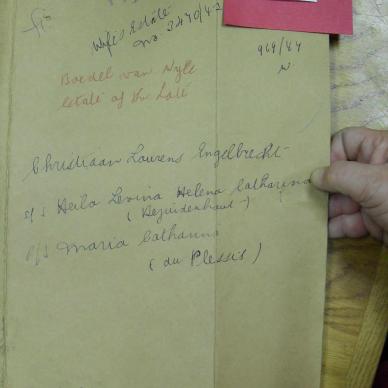 Wife's Estate
no 3470/42
969/44
Boedel van Wyle
estate of the Late
Christiaan Lourens Engelbrecht
s/s Heila Levina Helena Catharina
(Bezuidenhout)
o/s Maria Catharina
(du Plessis)